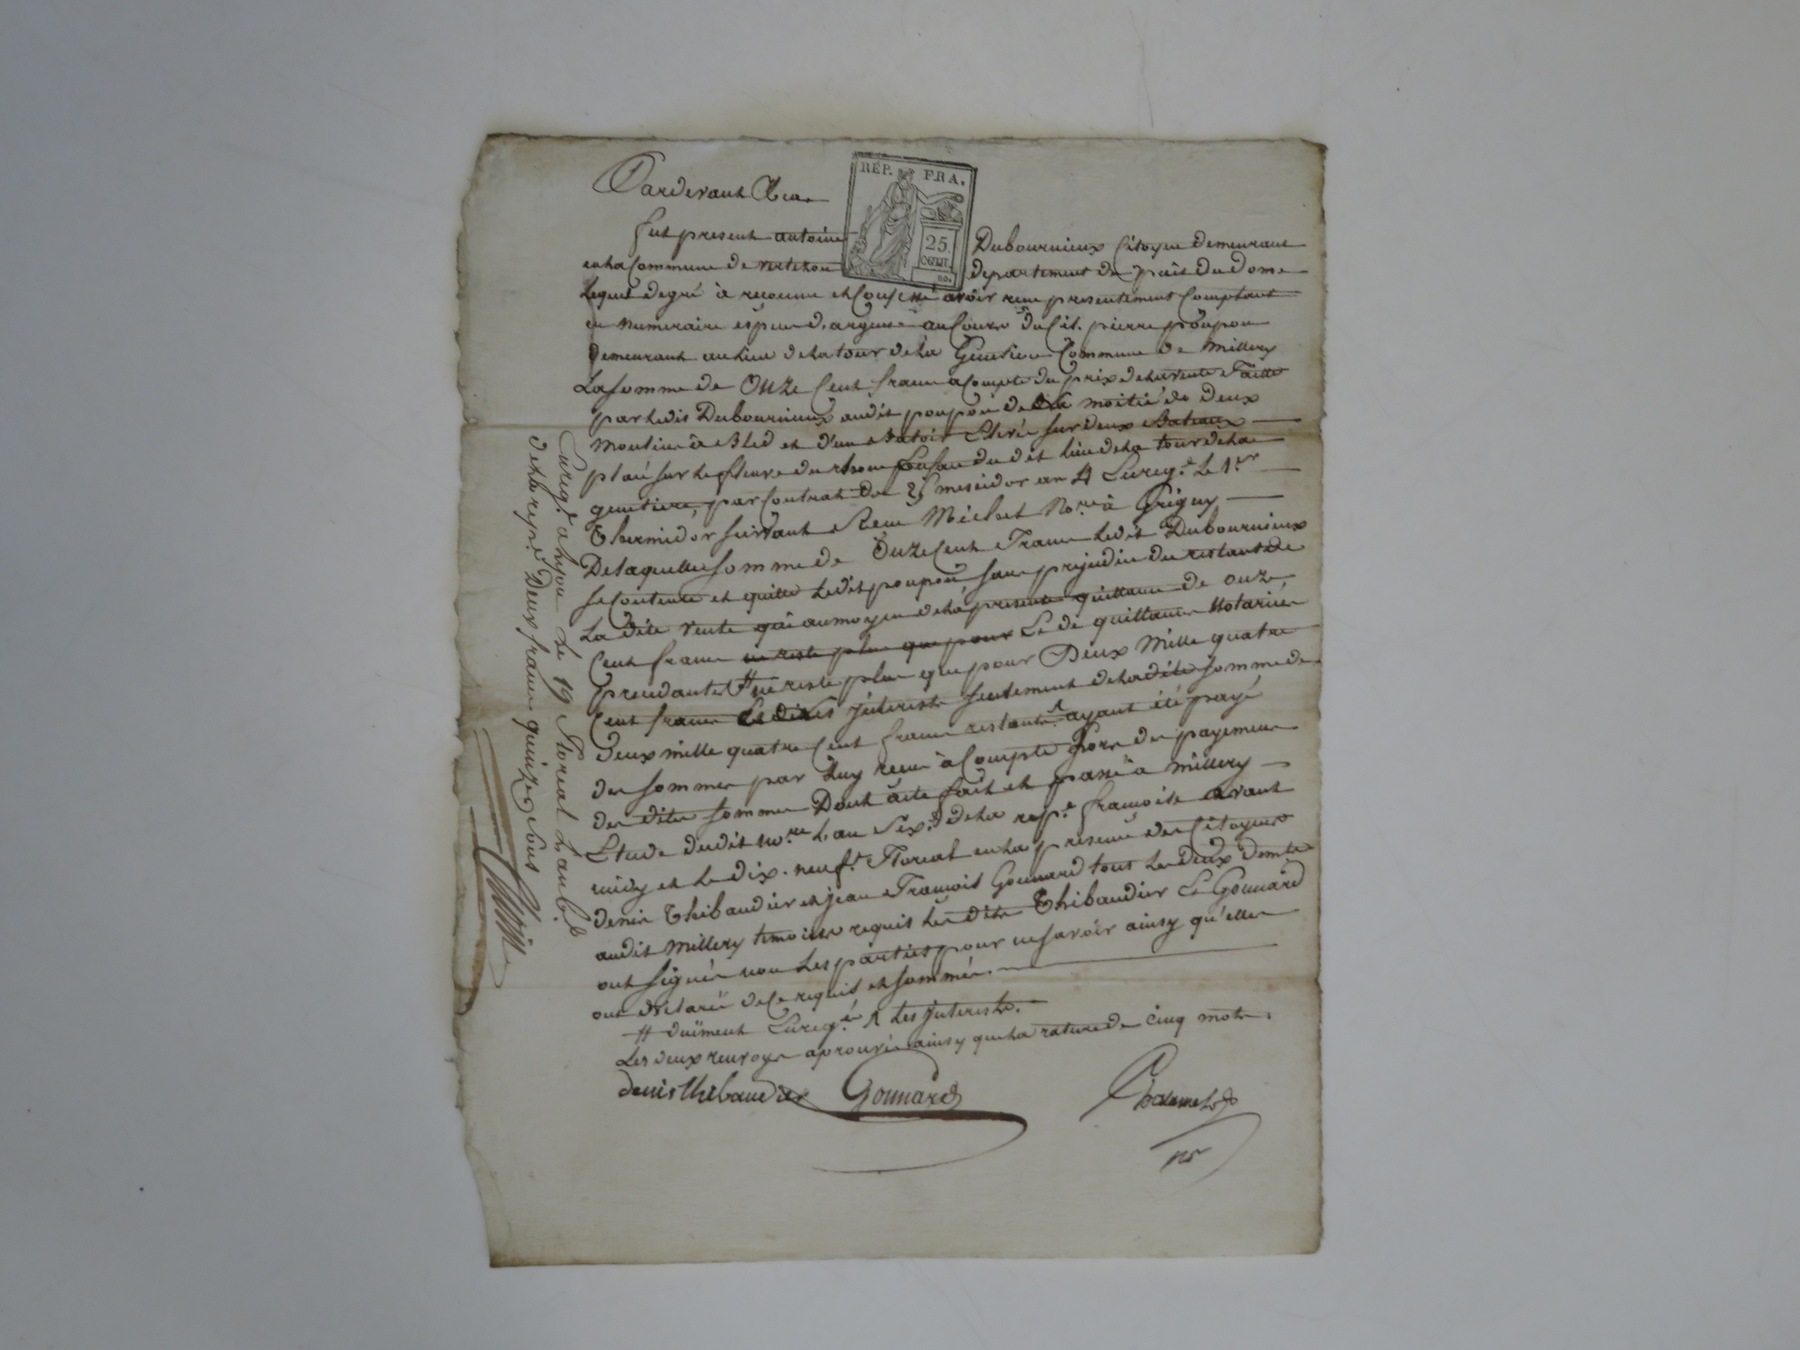 Pardevant
REP. FRA.
25.
CENT.
fut present antoine Dubournieux Citoyen demeurant
en la Commune de departement du puis du dome
Lequel de gré à reconnu et Confessé avoir reçu presentement Comptant
en numeraire espece d'argent au Cours du Cit. pierre poupon
demeurant au lieu de la tour de la Commune de millery
La somme de Onze Cent francs acompte du prix de la vente faitte
par Ledit Dubournieux audit poupon de la moitié de deux
moulins à Bled et d'un Batoir sur deux Bateaux
placé sur Le fleuve du rhone du dit lieu de la tour de la
par Contrat du 25 messidor an 4 Enreg.é le 1.er
Thermidor suivant Reçu Michel No.re à Grigny
De laquelle somme de Onze Cent francs Ledit Dubournieux
se Contente et quitte Ledit poupon sans prejudice du restant de
La dite vente qui au moyen de la presente quittance de onze
Cent francs ne reste plus que pour Le de quittances Notariées
precedantes # ne reste plus que pour Deux Mille quatre
Cent francs Les interists seulement de la dite somme de
Deux mille quatre Cent francs restants ayant été payé
des sommes par Luy reçu à Compte Lors des payemens
des dites sommes Dont acte fait et passé à millery
Etude dudit no.re L'an Six.e de la rep.e françoise avant
midy et Le dix-neuf.e floreal en la presence des Citoyens
denis Thibaudier et jean François Gounard tous Les deux dom.és
audit millery temoins requis Les dits Thibaudier Gounard
ont signés non Les parties pour ne savoir ainsy qu'elles
ont declaré de ce requis et sommés.
# duëment Enreg.é Λ Les jnterists.
Les deux renvoys aprouvés ainsy que la rature de cinq mots.
denis thibaudier Gounard
Enreg.é a Lyon Le 19 floreal L'an 6.e
de la rep.e Deux francs quinze Sous